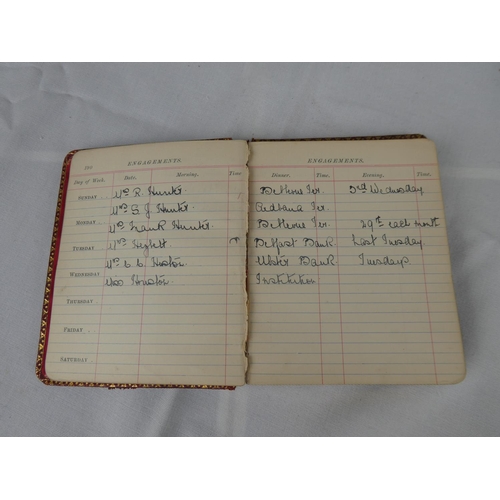 ENGAGEMENTS.
Day of Week. Date. Morning. Time
SUNDAY Mrs R. Hunter.
Mrs S. J. Hunter.
MONDAY Mrs Frank Hunter.
TUESDAY Mrs
Mrs
WEDNESDAY Miss Huston.
THURSDAY
FRIDAY
SATURDAY
ENGAGEMENTS.
Dinner. Time. Evening. Time.
Ter. 3rd Wednesday
Ter.
Ter. 29th each month
Belfast Bank. Last Tuesday.
Ulster Bank. Tuesdays
Institution